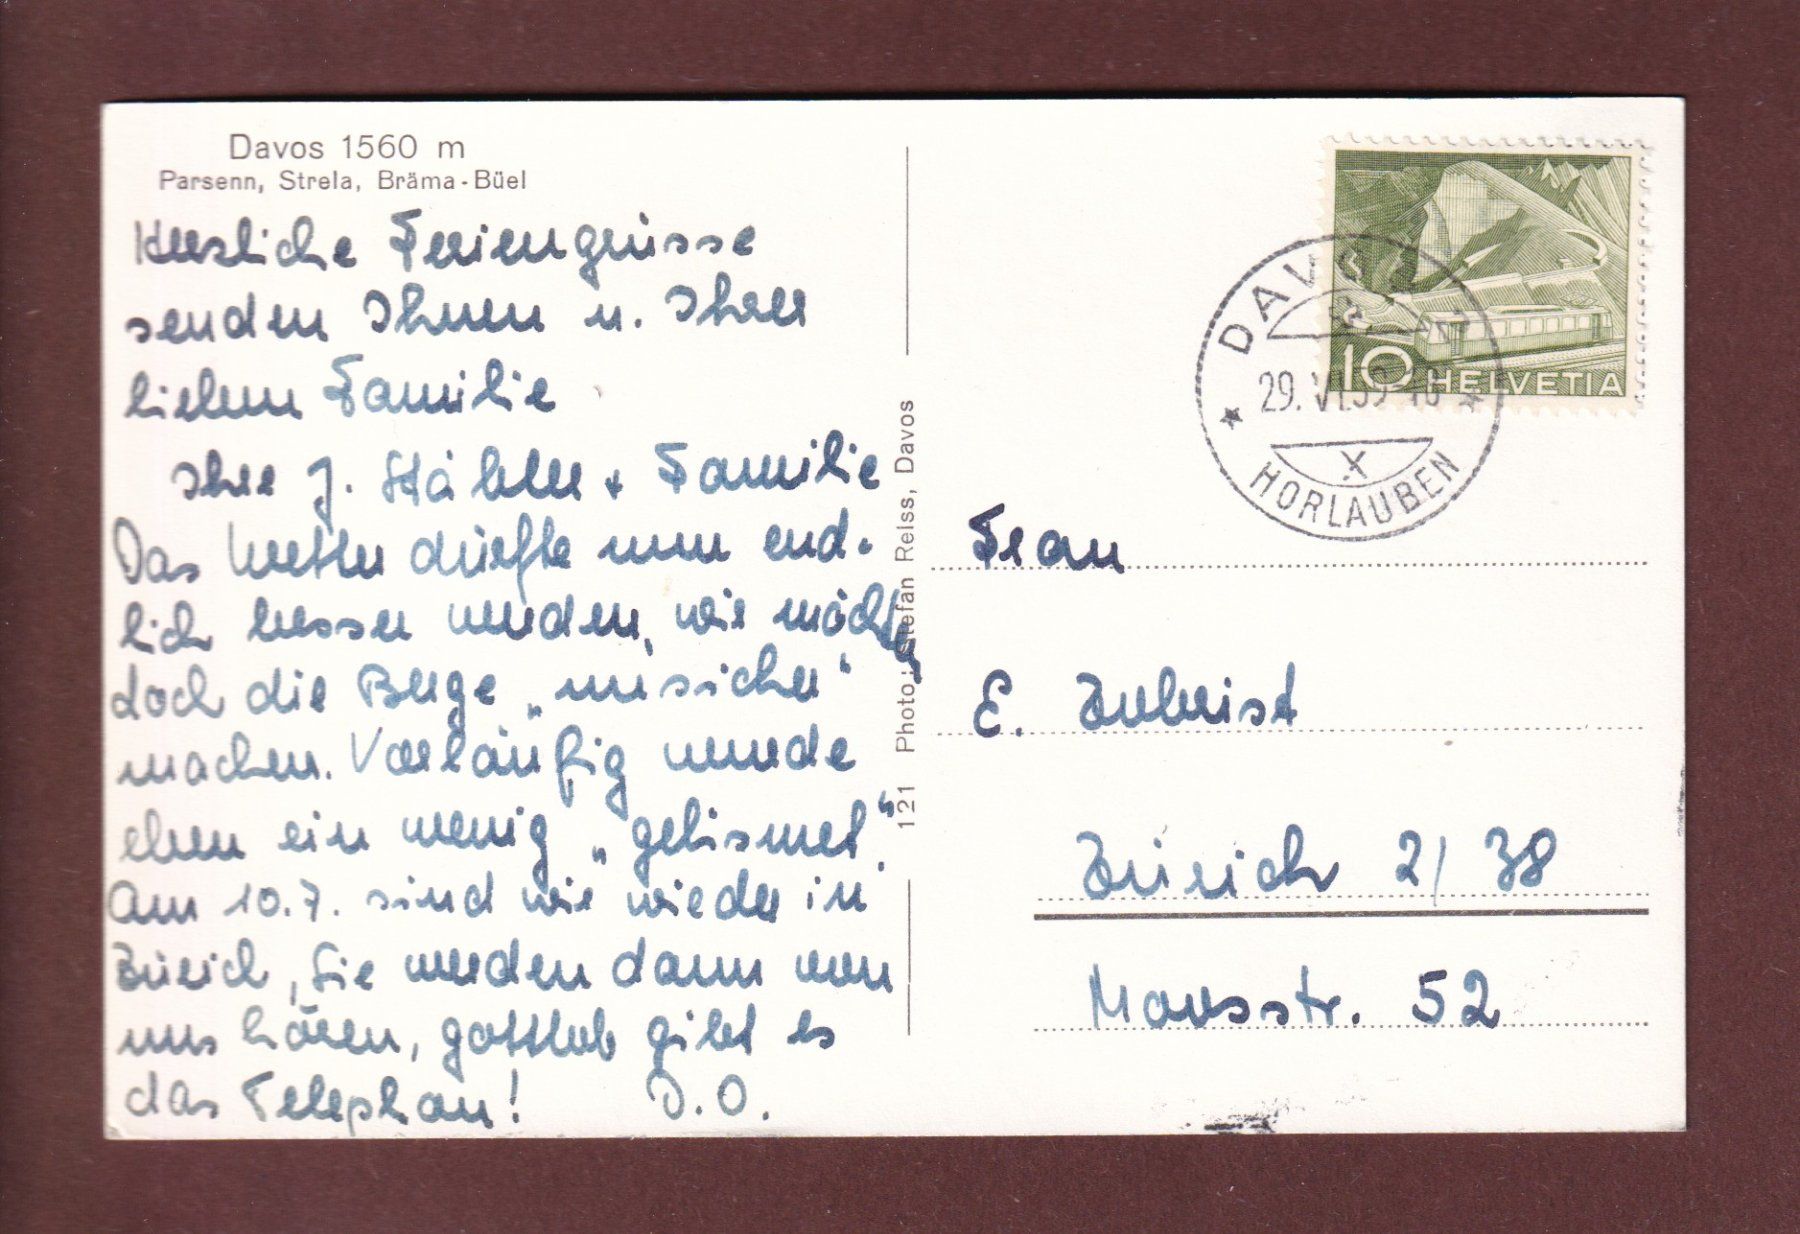 Davos 1560 m
Parsenn, Strela, Bräma-Büel
Herzliche Feriengrüsse
senden Ihnen u. Ihrer
lieben Familie
Ihre J. Stäbler + Familie
Das Wetter dürfte nun end-
lich besser werden, wir möchten
doch die Berge „unsicher"
machen. Vorläufig wurde
eben ein wenig „gelismet".
Am 10.7. sind wir wieder in
Zürich, Sie werden dann von
uns hören, gottlob gibt es
das Telephon! D.O.
121 Photo: Stefan Reiss, Davos
10 HELVETIA
DAVOS
29. VI. 59-18
X
HORLAUBEN
Frau
E. Zuberist
Zürich 2/38
Moosstr. 52